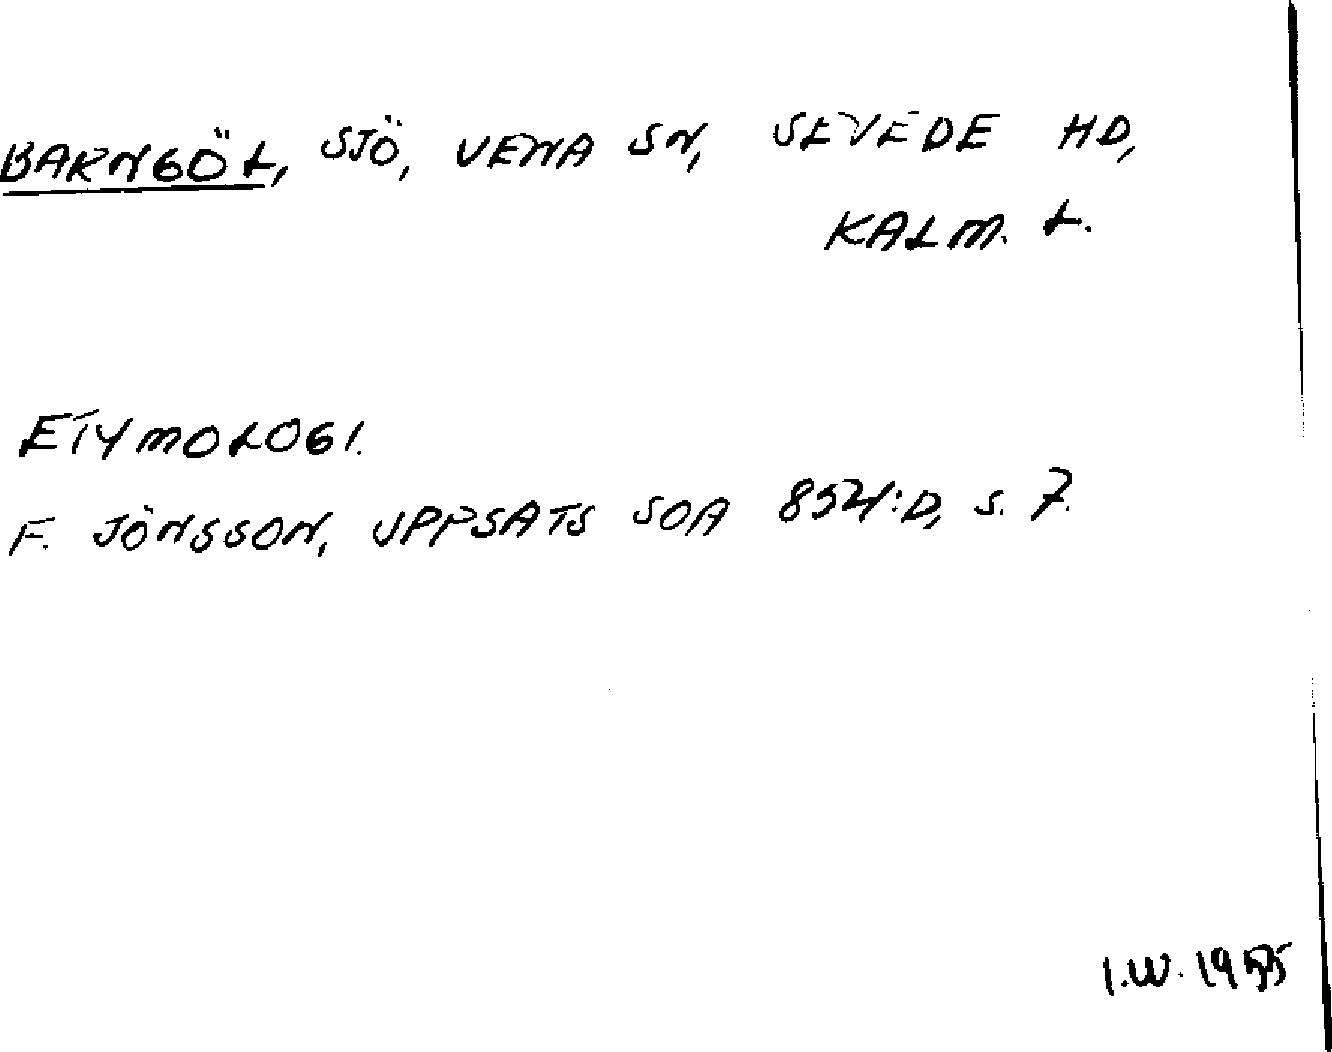 BARNGÖL, SJÖ, VENA SN, SEVEDE HD,
KALM. L.
ETYMOLOGI.
F. JÖNSSON, UPPSATS SOA 8521:D, S. 7.
I.W. 1955